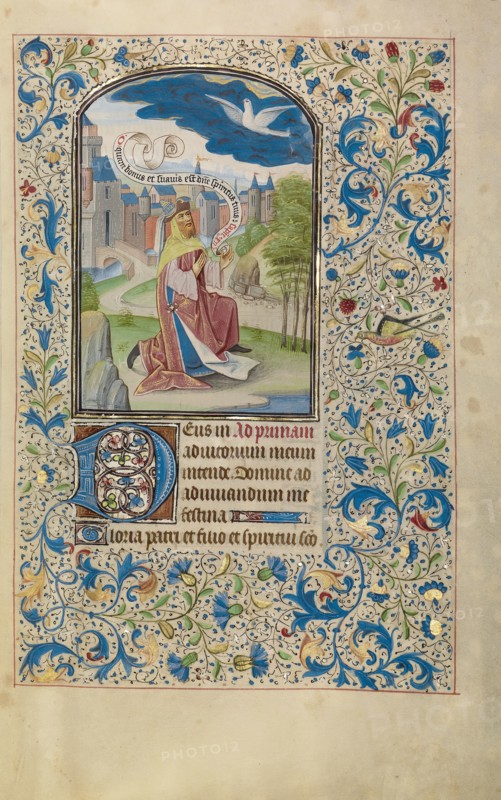 PHOTO12
O quam bonus et suavis est dñe spiritus tuus
Deus in Ad primam
adiutorium meum
intende. Domine ad
adiuuandum me
festina
Gloria patri et filio et spiritui sco
PHOTO12